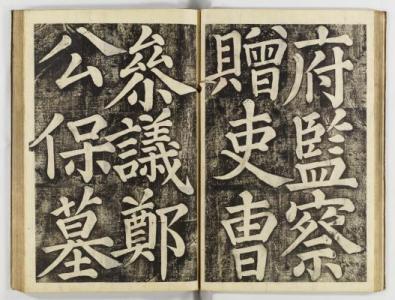 府監察
贈吏曹
叅議鄭
公保墓